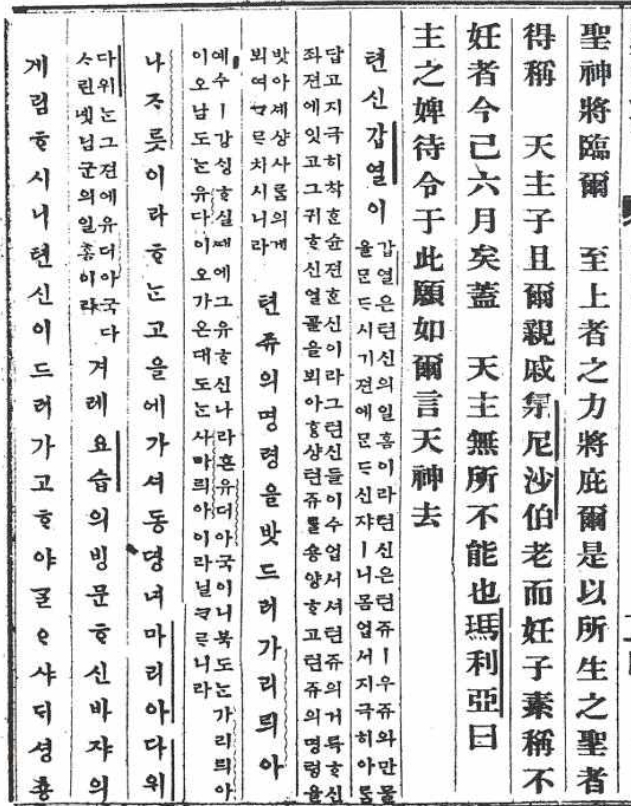 聖神將臨爾 至上者之力將庇爾是以所生之聖者
得稱 天主子且爾親戚尼沙伯老而妊子素稱不
妊者今己六月矣蓋 天主無所不能也瑪利亞曰
主之婢待令于此願如爾言天神去
텬신갑열이
갑열은텬신의일홈이라텬신은텬쥬ㅣ우쥬와만물
을ᄆᆞᆫᄃᆞ시기젼에ᄆᆞᆫᄃᆞ신쟈ㅣ니몸업서지극히아ᄅᆞᆷ
답고지극히착ᄒᆞᆫ슌젼ᄒᆞᆫ신이라그텬신들이수업서셔텬쥬의거륵ᄒᆞ신
좌젼에잇고그귀ᄒᆞ신얼골을뵈아ᄒᆞᆼ샹텬쥬ᄅᆞᆯ용양ᄒᆞ고텬쥬의명령을
밧아셰샹사ᄅᆞᆷ의게
뵈여ᄀᆞᄅᆞ치시니라
텬쥬의명령을밧드러가리릐아
예수ㅣ강ᄉᆡᆼᄒᆞ실ᄯᅢ에그유ᄒᆞ신나라흔유더아국이니북도ᄂᆞᆫ가리릐아
이오남도ᄂᆞᆫ유다이오가온대도ᄂᆞᆫ사마릐아이라닐ᄏᆞᄅᆞ니라
나ᄌᆞ륫이라ᄒᆞᄂᆞᆫ고을에가셔동뎡녀마리아다위
다위ᄂᆞᆫ그젼에유더아국다
ᄉᆞ린녯님군의일홈이라
겨레요습의빙문ᄒᆞ신바쟈의
게림ᄒᆞ시니텬신이드러가고ᄒᆞ야ᄀᆞᆯᄋᆞ샤ᄃᆡ셩춍